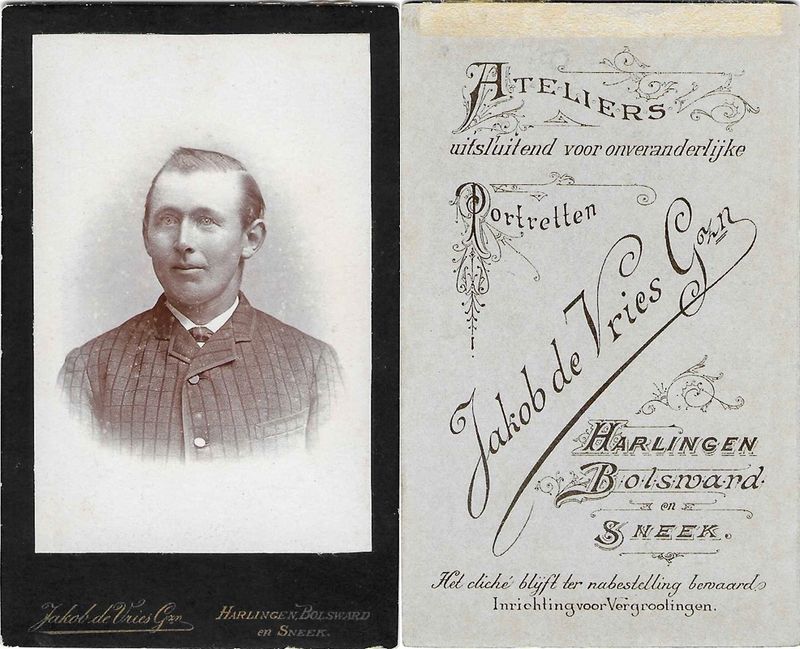 Jakob de Vries Gzn
HARLINGEN, BOLSWARD
en SNEEK.
ATELIERS
uitsluitend voor onveranderlijke
Portretten
Jakob de Vries Gzn
HARLINGEN
Bolsward
en
SNEEK.
Het cliché blijft ter nabestelling bewaard
Inrichting voor Vergrootingen.